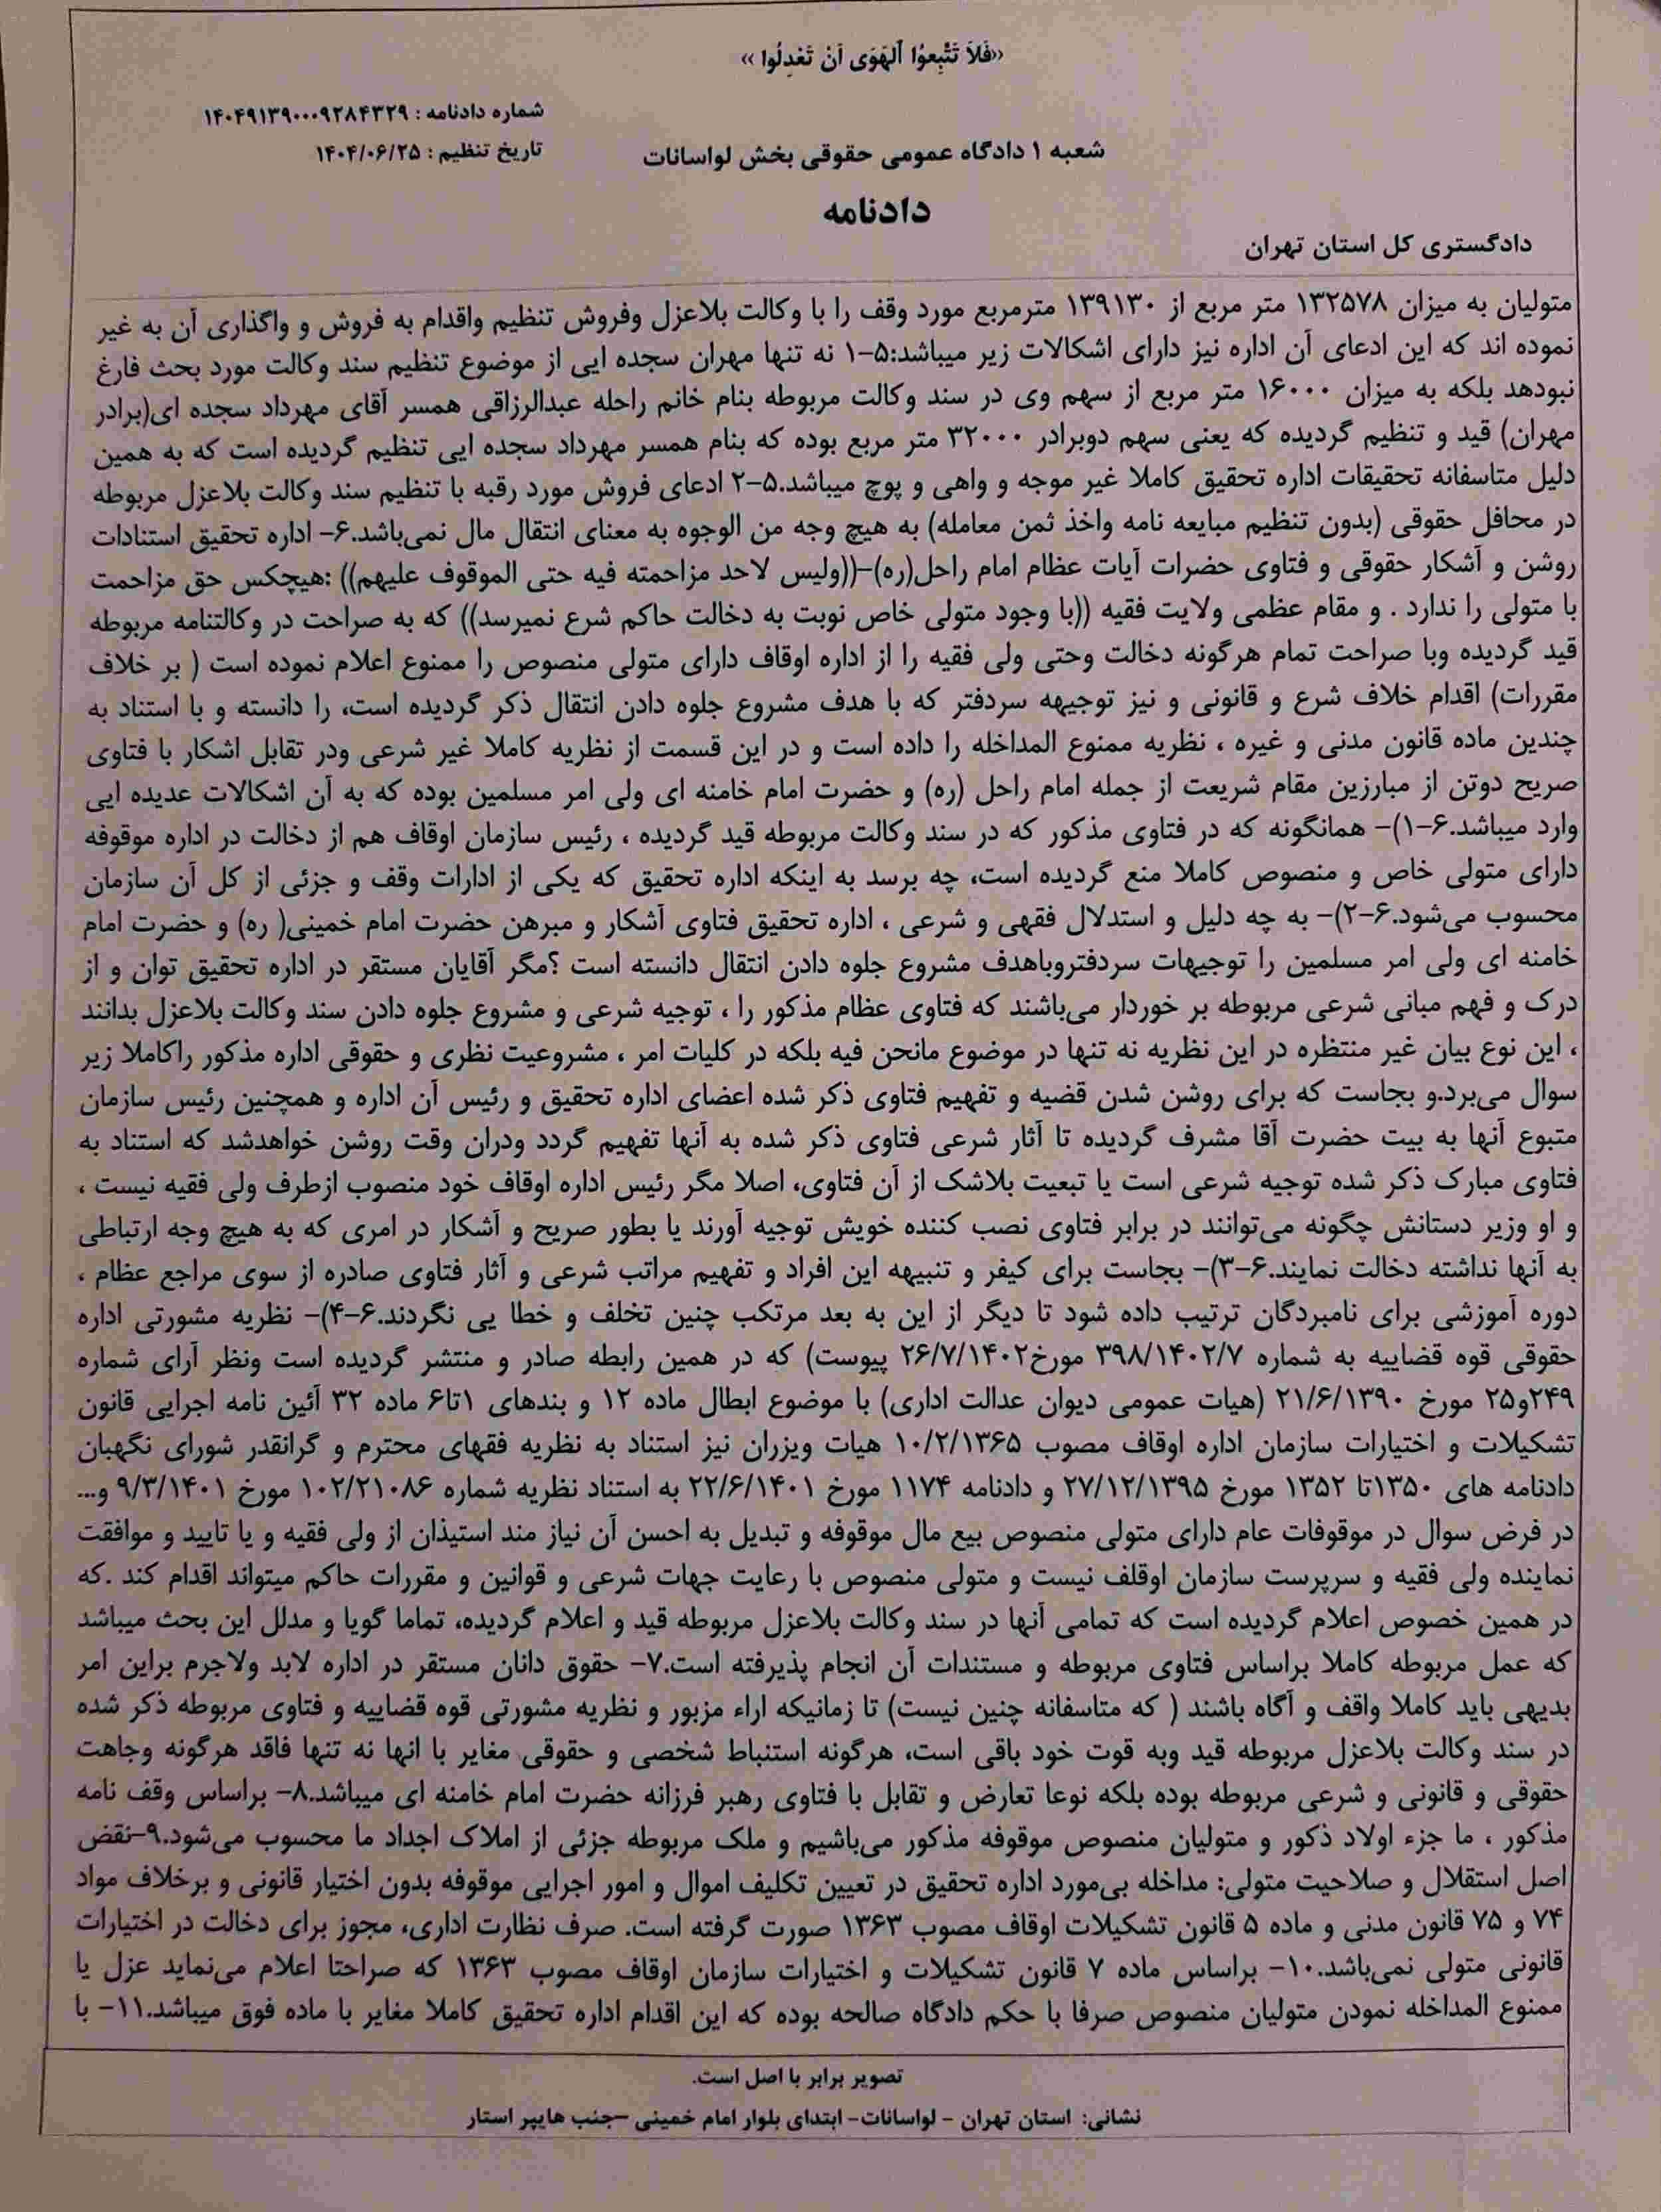 «فَلاَ تَتَّبِعوُا اَلهَوَی اَنْ تَعْدِلُوا »
شماره دادنامه : ۱۴۰۴۹۱۳۹۰۰۰۹۲۸۴۳۲۹
تاریخ تنظیم : ۱۴۰۴/۰۶/۲۵
شعبه ۱ دادگاه عمومی حقوقی بخش لواسانات
دادنامه
دادگستری کل استان تهران
متولیان به میزان ۱۳۲۵۷۸ متر مربع از ۱۳۹۱۳۰ مترمربع مورد وقف را با وکالت بلاعزل وفروش تنظیم واقدام به فروش و واگذاری آن به غیر
نموده اند که این ادعای آن اداره نیز دارای اشکالات زیر میباشد:۵-۱ نه تنها مهران سجده ایی از موضوع تنظیم سند وکالت مورد بحث فارغ
نبودهد بلکه به میزان ۱۶۰۰۰ متر مربع از سهم وی در سند وکالت مربوطه بنام خانم راحله عبدالرزاقی همسر آقای مهرداد سجده ای(برادر
مهران) قید و تنظیم گردیده که یعنی سهم دوبرادر ۳۲۰۰۰ متر مربع بوده که بنام همسر مهرداد سجده ایی تنظیم گردیده است که به همین
دلیل متاسفانه تحقیقات اداره تحقیق کاملا غیر موجه و واهی و پوچ میباشد.۵-۲ ادعای فروش مورد رقبه با تنظیم سند وکالت بلاعزل مربوطه
در محافل حقوقی (بدون تنظیم مبایعه نامه واخذ ثمن معامله) به هیچ وجه من الوجوه به معنای انتقال مال نمی‌باشد.۶- اداره تحقیق استنادات
روشن و آشکار حقوقی و فتاوی حضرات آیات عظام امام راحل(ره)-((ولیس لاحد مزاحمته فیه حتی الموقوف علیهم)) :هیچکس حق مزاحمت
با متولی را ندارد . و مقام عظمی ولایت فقیه ((با وجود متولی خاص نوبت به دخالت حاکم شرع نمیرسد)) که به صراحت در وکالتنامه مربوطه
قید گردیده وبا صراحت تمام هرگونه دخالت وحتی ولی فقیه را از اداره اوقاف دارای متولی منصوص را ممنوع اعلام نموده است ( بر خلاف
مقررات) اقدام خلاف شرع و قانونی و نیز توجیهه سردفتر که با هدف مشروع جلوه دادن انتقال ذکر گردیده است، را دانسته و با استناد به
چندین ماده قانون مدنی و غیره ، نظریه ممنوع المداخله را داده است و در این قسمت از نظریه کاملا غیر شرعی ودر تقابل اشکار با فتاوی
صریح دوتن از مبارزین مقام شریعت از جمله امام راحل (ره) و حضرت امام خامنه ای ولی امر مسلمین بوده که به آن اشکالات عدیده ایی
وارد میباشد.۶-۱)- همانگونه که در فتاوی مذکور که در سند وکالت مربوطه قید گردیده ، رئیس سازمان اوقاف هم از دخالت در اداره موقوفه
دارای متولی خاص و منصوص کاملا منع گردیده است، چه برسد به اینکه اداره تحقیق که یکی از ادارات وقف و جزئی از کل آن سازمان
محسوب می‌شود.۶-۲)- به چه دلیل و استدلال فقهی و شرعی ، اداره تحقیق فتاوی آشکار و مبرهن حضرت امام خمینی( ره) و حضرت امام
خامنه ای ولی امر مسلمین را توجیهات سردفتروباهدف مشروع جلوه دادن انتقال دانسته است ؟مگر آقایان مستقر در اداره تحقیق توان و از
درک و فهم مبانی شرعی مربوطه بر خوردار می‌باشند که فتاوی عظام مذکور را ، توجیه شرعی و مشروع جلوه دادن سند وکالت بلاعزل بدانند
، این نوع بیان غیر منتظره در این نظریه نه تنها در موضوع مانحن فیه بلکه در کلیات امر ، مشروعیت نظری و حقوقی اداره مذکور راکاملا زیر
سوال می‌برد.و بجاست که برای روشن شدن قضیه و تفهیم فتاوی ذکر شده اعضای اداره تحقیق و رئیس آن اداره و همچنین رئیس سازمان
متبوع آنها به بیت حضرت آقا مشرف گردیده تا آثار شرعی فتاوی ذکر شده به آنها تفهیم گردد ودران وقت روشن خواهدشد که استناد به
فتاوی مبارک ذکر شده توجیه شرعی است یا تبعیت بلاشک از آن فتاوی، اصلا مگر رئیس اداره اوقاف خود منصوب ازطرف ولی فقیه نیست ،
و او وزیر دستانش چگونه می‌توانند در برابر فتاوی نصب کننده خویش توجیه آورند یا بطور صریح و آشکار در امری که به هیچ وجه ارتباطی
به آنها نداشته دخالت نمایند.۶-۳)- بجاست برای کیفر و تنبیهه این افراد و تفهیم مراتب شرعی و آثار فتاوی صادره از سوی مراجع عظام ،
دوره آموزشی برای نامبردگان ترتیب داده شود تا دیگر از این به بعد مرتکب چنین تخلف و خطا یی نگردند.۶-۴)- نظریه مشورتی اداره
حقوقی قوه قضاییه به شماره ۳۹۸/۱۴۰۲/۷ مورخ۲۶/۷/۱۴۰۲ پیوست) که در همین رابطه صادر و منتشر گردیده است ونظر آرای شماره
۲۴۹و۲۵ مورخ ۲۱/۶/۱۳۹۰ (هیات عمومی دیوان عدالت اداری) با موضوع ابطال ماده ۱۲ و بندهای ۱تا۶ ماده ۳۲ آئین نامه اجرایی قانون
تشکیلات و اختیارات سازمان اداره اوقاف مصوب ۱۰/۲/۱۳۶۵ هیات ویزران نیز استناد به نظریه فقهای محترم و گرانقدر شورای نگهبان
دادنامه های ۱۳۵۰تا ۱۳۵۲ مورخ ۲۷/۱۲/۱۳۹۵ و دادنامه ۱۱۷۴ مورخ ۲۲/۶/۱۴۰۱ به استناد نظریه شماره ۱۰۲/۲۱۰۸۶ مورخ ۹/۳/۱۴۰۱ و...
در فرض سوال در موقوفات عام دارای متولی منصوص بیع مال موقوفه و تبدیل به احسن آن نیاز مند استیذان از ولی فقیه و یا تایید و موافقت
نماینده ولی فقیه و سرپرست سازمان اوقلف نیست و متولی منصوص با رعایت جهات شرعی و قوانین و مقررات حاکم میتواند اقدام کند .که
در همین خصوص اعلام گردیده است که تمامی آنها در سند وکالت بلاعزل مربوطه قید و اعلام گردیده، تماما گویا و مدلل این بحث میباشد
که عمل مربوطه کاملا براساس فتاوی مربوطه و مستندات آن انجام پذیرفته است.۷- حقوق دانان مستقر در اداره لابد ولاجرم براین امر
بدیهی باید کاملا واقف و آگاه باشند ( که متاسفانه چنین نیست) تا زمانیکه اراء مزبور و نظریه مشورتی قوه قضاییه و فتاوی مربوطه ذکر شده
در سند وکالت بلاعزل مربوطه قید وبه قوت خود باقی است، هرگونه استنباط شخصی و حقوقی مغایر با انها نه تنها فاقد هرگونه وجاهت
حقوقی و قانونی و شرعی مربوطه بوده بلکه نوعا تعارض و تقابل با فتاوی رهبر فرزانه حضرت امام خامنه ای میباشد.۸- براساس وقف نامه
مذکور ، ما جزء اولاد ذکور و متولیان منصوص موقوفه مذکور می‌باشیم و ملک مربوطه جزئی از املاک اجداد ما محسوب می‌شود.۹-نقض
اصل استقلال و صلاحیت متولی: مداخله بی‌مورد اداره تحقیق در تعیین تکلیف اموال و امور اجرایی موقوفه بدون اختیار قانونی و برخلاف مواد
۷۴ و ۷۵ قانون مدنی و ماده ۵ قانون تشکیلات اوقاف مصوب ۱۳۶۳ صورت گرفته است. صرف نظارت اداری، مجوز برای دخالت در اختیارات
قانونی متولی نمی‌باشد.۱۰- براساس ماده ۷ قانون تشکیلات و اختیارات سازمان اوقاف مصوب ۱۳۶۳ که صراحتا اعلام می‌نماید عزل یا
ممنوع المداخله نمودن متولیان منصوص صرفا با حکم دادگاه صالحه بوده که این اقدام اداره تحقیق کاملا مغایر با ماده فوق میباشد.۱۱- با
تصویر برابر با اصل است.
نشانی: استان تهران - لواسانات- ابتدای بلوار امام خمینی -جنب هایپر استار